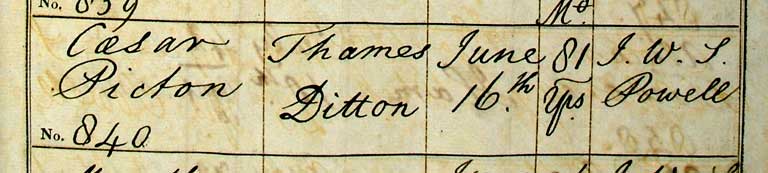 No. 839
Mo
Cæsar Thames June 81 J. W. S.
Picton Ditton 16.th Yrs Powell
No. 840